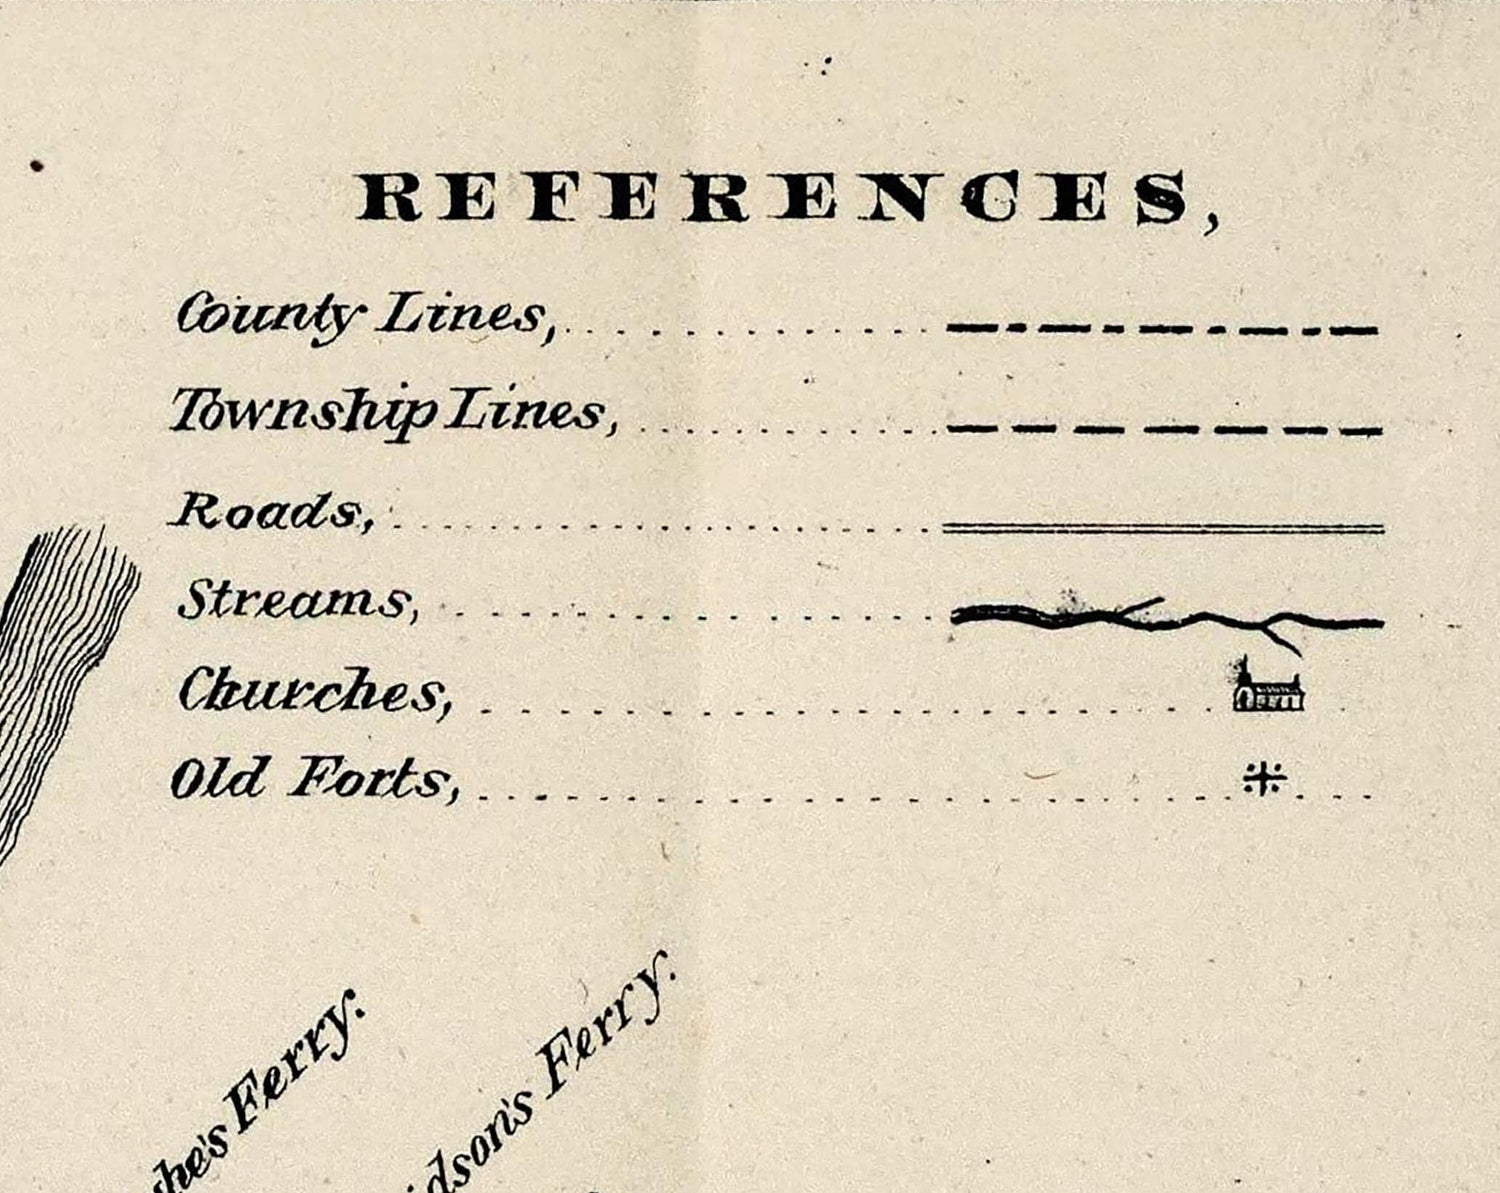 REFERENCES,
County Lines,
Township Lines,
Roads,
Streams,
Churches,
Old Forts,
Ferry.
Ferry.